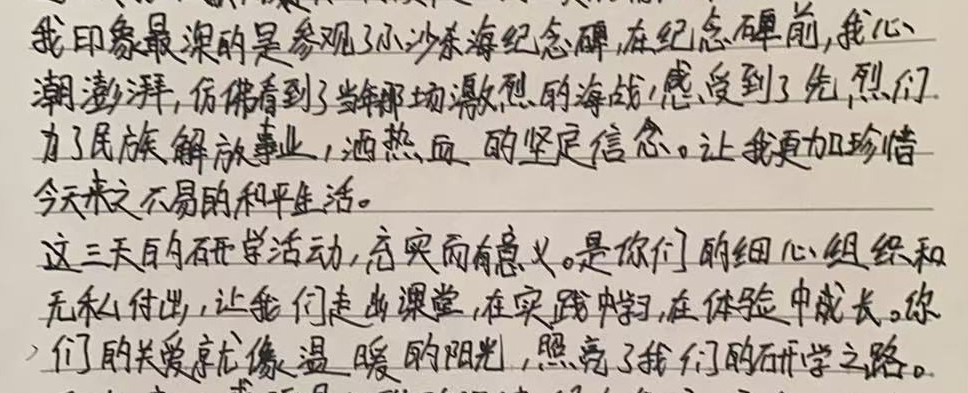 我印象最深的是参观了小沙东海纪念碑,在纪念碑前,我心
潮澎湃,仿佛看到了当年那场激烈的海战,感受到了先烈们
为了民族解放事业,洒热血的坚定信念。让我更加珍惜
今天来之不易的和平生活。
这三天的研学活动,充实而有意义。是你们的细心组织和
无私付出,让我们走出课堂,在实践中学习,在体验中成长。你
们的关爱就像温暖的阳光,照亮了我们的研学之路。